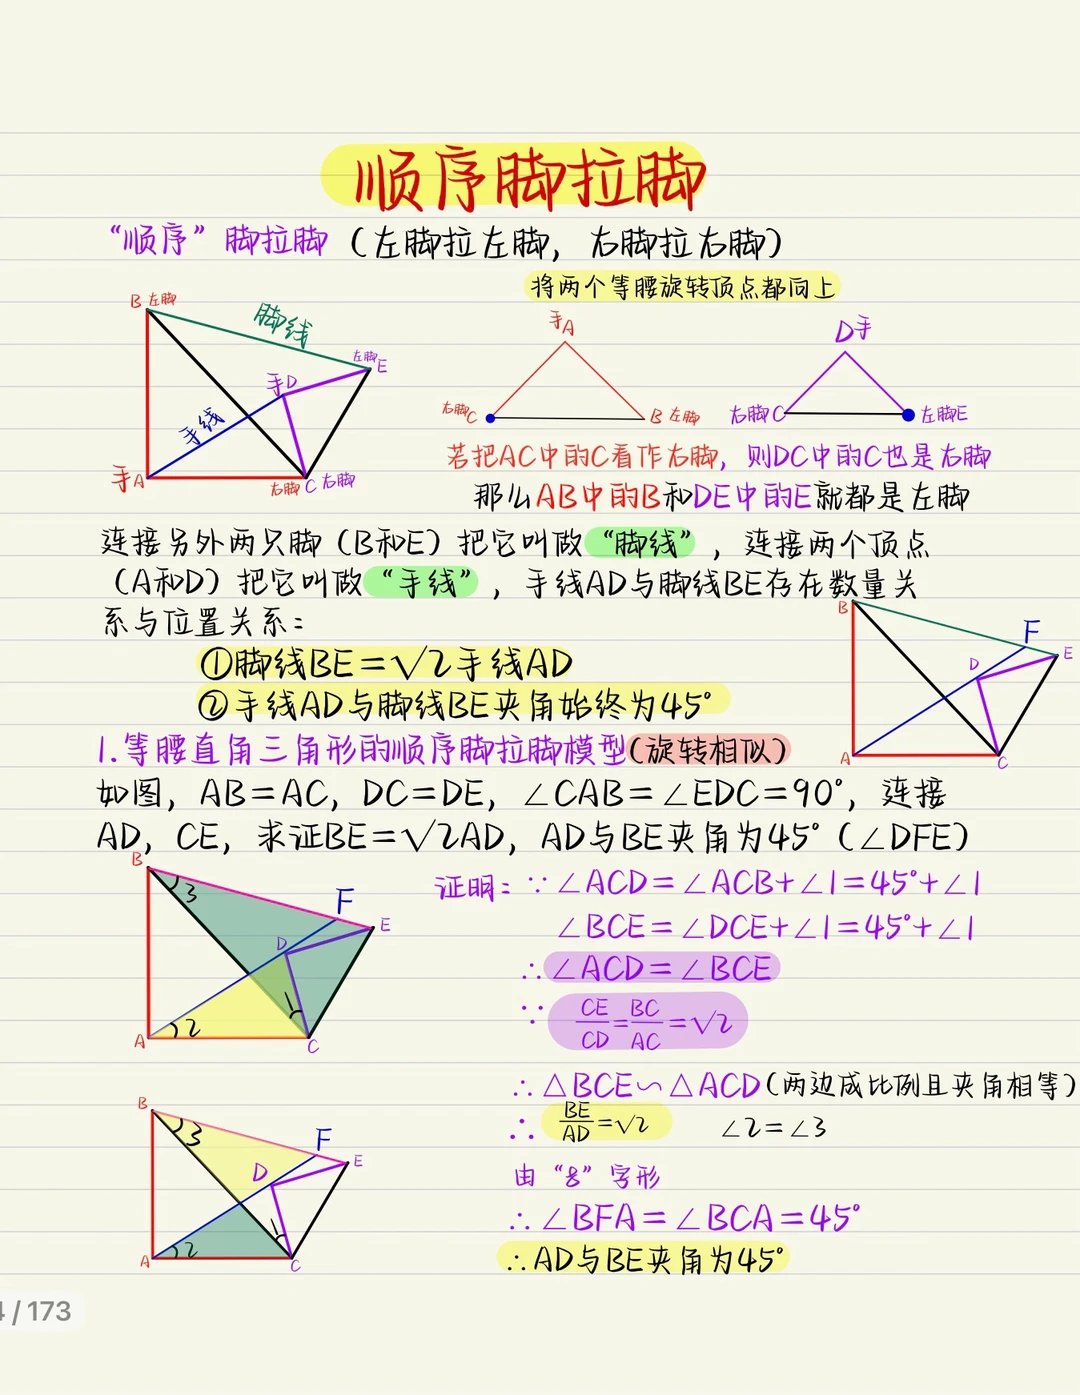 顺序脚拉脚
“顺序”脚拉脚（左脚拉左脚，右脚拉右脚）
将两个等腰旋转顶点都向上
B 左脚
脚线
左脚
E
手D
手线
手A
右脚 C 右脚
手A
右脚C
B 左脚
D手
右脚C
左脚E
若把AC中的C看作右脚，则DC中的C也是右脚
那么AB中的B和DE中的E就都是左脚
连接另外两只脚（B和E）把它叫做“脚线”，连接两个顶点
（A和D）把它叫做“手线”，手线AD与脚线BE存在数量关
系与位置关系：
①脚线BE=√2手线AD
②手线AD与脚线BE夹角始终为45°
B
F
D
E
A
C
1.等腰直角三角形的顺序脚拉脚模型(旋转相似)
如图，AB=AC，DC=DE，∠CAB=∠EDC=90°，连接
AD，CE，求证BE=√2AD，AD与BE夹角为45°（∠DFE）
B
3
F
E
D
1
2
A
C
证明：∵∠ACD=∠ACB+∠1=45°+∠1
∠BCE=∠DCE+∠1=45°+∠1
∴∠ACD=∠BCE
∵ CE/CD=BC/AC=√2
∴△BCE∽△ACD(两边成比例且夹角相等)
∴ BE/AD=√2 ∠2=∠3
由“8”字形
∴∠BFA=∠BCA=45°
∴AD与BE夹角为45°
B
3
F
E
D
1
2
A
C
4/173